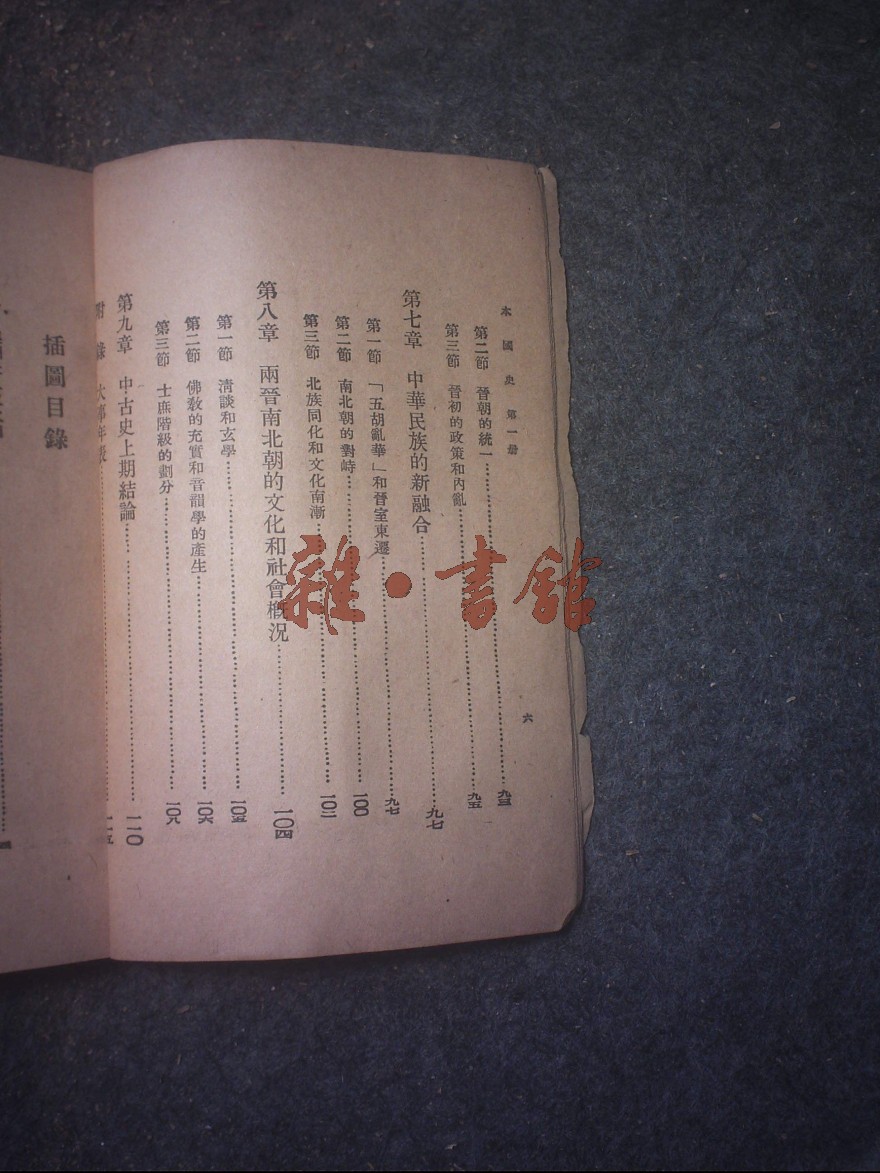 本國史 第一册 六
第二節 晉朝的統一 九三
第三節 晉初的政策和內亂 九五
第七章 中華民族的新融合 九七
第一節 「五胡亂華」和晉室東遷 九七
第二節 南北朝的對峙 一〇〇
第三節 北族同化和文化南漸 一〇二
第八章 兩晉南北朝的文化和社會槪況 一〇四
第一節 淸談和玄學 一〇五
第二節 佛敎的充實和音韻學的產生 一〇六
第三節 士庶階級的劃分 一〇八
第九章 中古史上期結論 一一〇
附錄 大事年表 一一五
插圖目錄
雜·書館